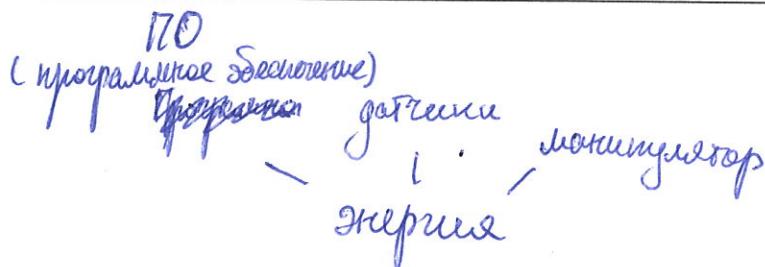 ПО
(программное обеспечение)
датчики
манипулятор
энергия